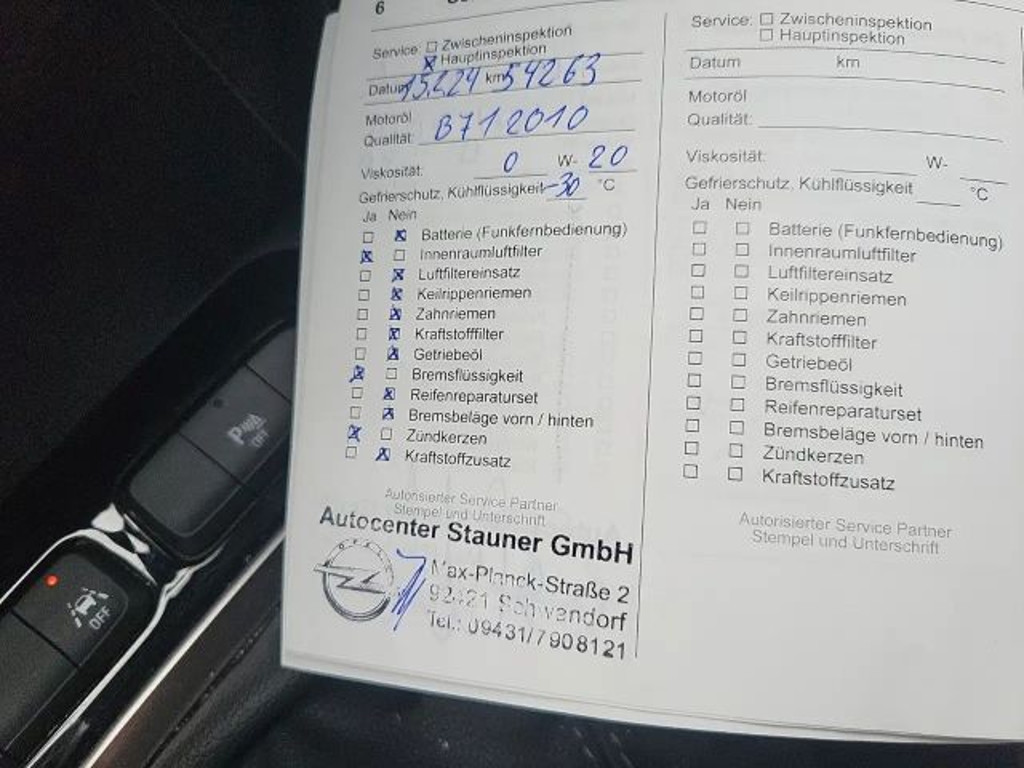 6
Service: ☐ Zwischeninspektion
☒ Hauptinspektion
Datum 15.2.24 km 54263
Motoröl
Qualität: B71 2010
Viskosität: 0 W- 20
Gefrierschutz, Kühlflüssigkeit -30 °C
Ja Nein
☐ ☒ Batterie (Funkfernbedienung)
☒ ☐ Innenraumluftfilter
☐ ☒ Luftfiltereinsatz
☐ ☒ Keilrippenriemen
☐ ☒ Zahnriemen
☐ ☒ Kraftstofffilter
☐ ☒ Getriebeöl
☒ ☐ Bremsflüssigkeit
☐ ☒ Reifenreparaturset
☐ ☒ Bremsbeläge vorn / hinten
☒ ☐ Zündkerzen
☐ ☒ Kraftstoffzusatz
Autorisierter Service Partner
Stempel und Unterschrift
Autocenter Stauner GmbH
OPEL
Max-Planck-Straße 2
92421 Schwandorf
Tel.: 09431/7908121
Service: ☐ Zwischeninspektion
☐ Hauptinspektion
Datum km
Motoröl
Qualität:
Viskosität: W-
Gefrierschutz, Kühlflüssigkeit °C
Ja Nein
☐ ☐ Batterie (Funkfernbedienung)
☐ ☐ Innenraumluftfilter
☐ ☐ Luftfiltereinsatz
☐ ☐ Keilrippenriemen
☐ ☐ Zahnriemen
☐ ☐ Kraftstofffilter
☐ ☐ Getriebeöl
☐ ☐ Bremsflüssigkeit
☐ ☐ Reifenreparaturset
☐ ☐ Bremsbeläge vorn / hinten
☐ ☐ Zündkerzen
☐ ☐ Kraftstoffzusatz
Autorisierter Service Partner
Stempel und Unterschrift
P OFF
OFF